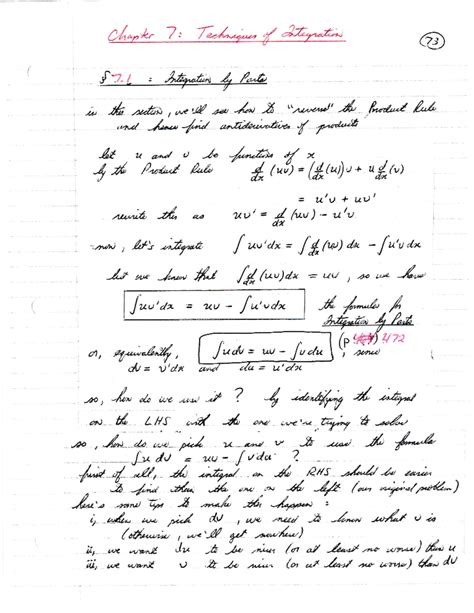 Chapter 7: Techniques of Integration
73
§ 7.1 : Integration by Parts
in this section, we'll see how to "reverse" the Product Rule
and hence find antiderivatives of products
let u and v be functions of x
by the Product Rule d/dx (uv) = (d/dx (u))v + u d/dx (v)
= u'v + uv'
rewrite this as uv' = d/dx (uv) - u'v
now, let's integrate ∫uv'dx = ∫d/dx (uv) dx - ∫u'v dx
but we know that ∫d/dx (uv)dx = uv, so we have
∫uv'dx = uv - ∫u'vdx the formula for
Integration by Parts
(P 472
or, equivalently, ∫udv = uv - ∫vdu, since
dv = v'dx and du = u'dx
so, how do we use it ? by identifying the integral
on the LHS with the one we're trying to solve
so, how do we pick u and v to use the formula
∫u dv = uv - ∫vdu ?
first of all, the integral on the RHS should be easier
to find than the one on the left (our original problem)
here's some tips to make this happen :
i, when we pick dv, we need to know what v is
(otherwise, we'll get nowhere)
ii, we want du to be nicer (or at least no worse) than u
iii, we want v to be nicer (or at least no worse) than dv